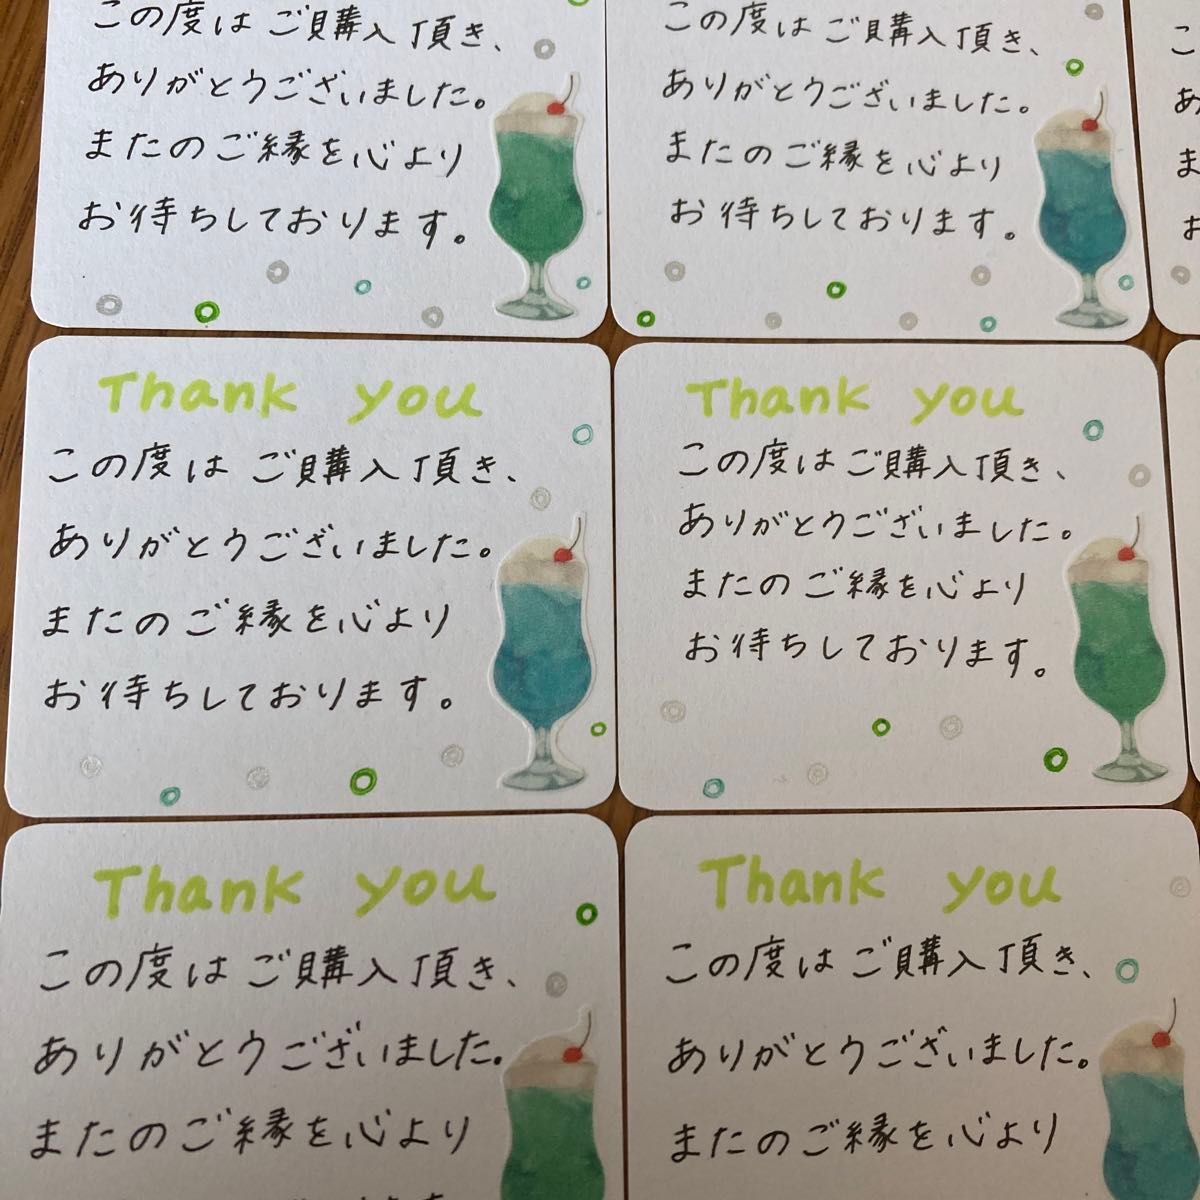 この度はご購入頂き、
ありがとうございました。
またのご縁を心より
お待ちしております。
この度はご購入頂き、
ありがとうございました。
またのご縁を心より
お待ちしております。
Thank you
この度はご購入頂き、
ありがとうございました。
またのご縁を心より
お待ちしております。
Thank you
この度はご購入頂き、
ありがとうございました。
またのご縁を心より
お待ちしております。
Thank you
この度はご購入頂き、
ありがとうございました。
またのご縁を心より
Thank you
この度はご購入頂き、
ありがとうございました。
またのご縁を心より